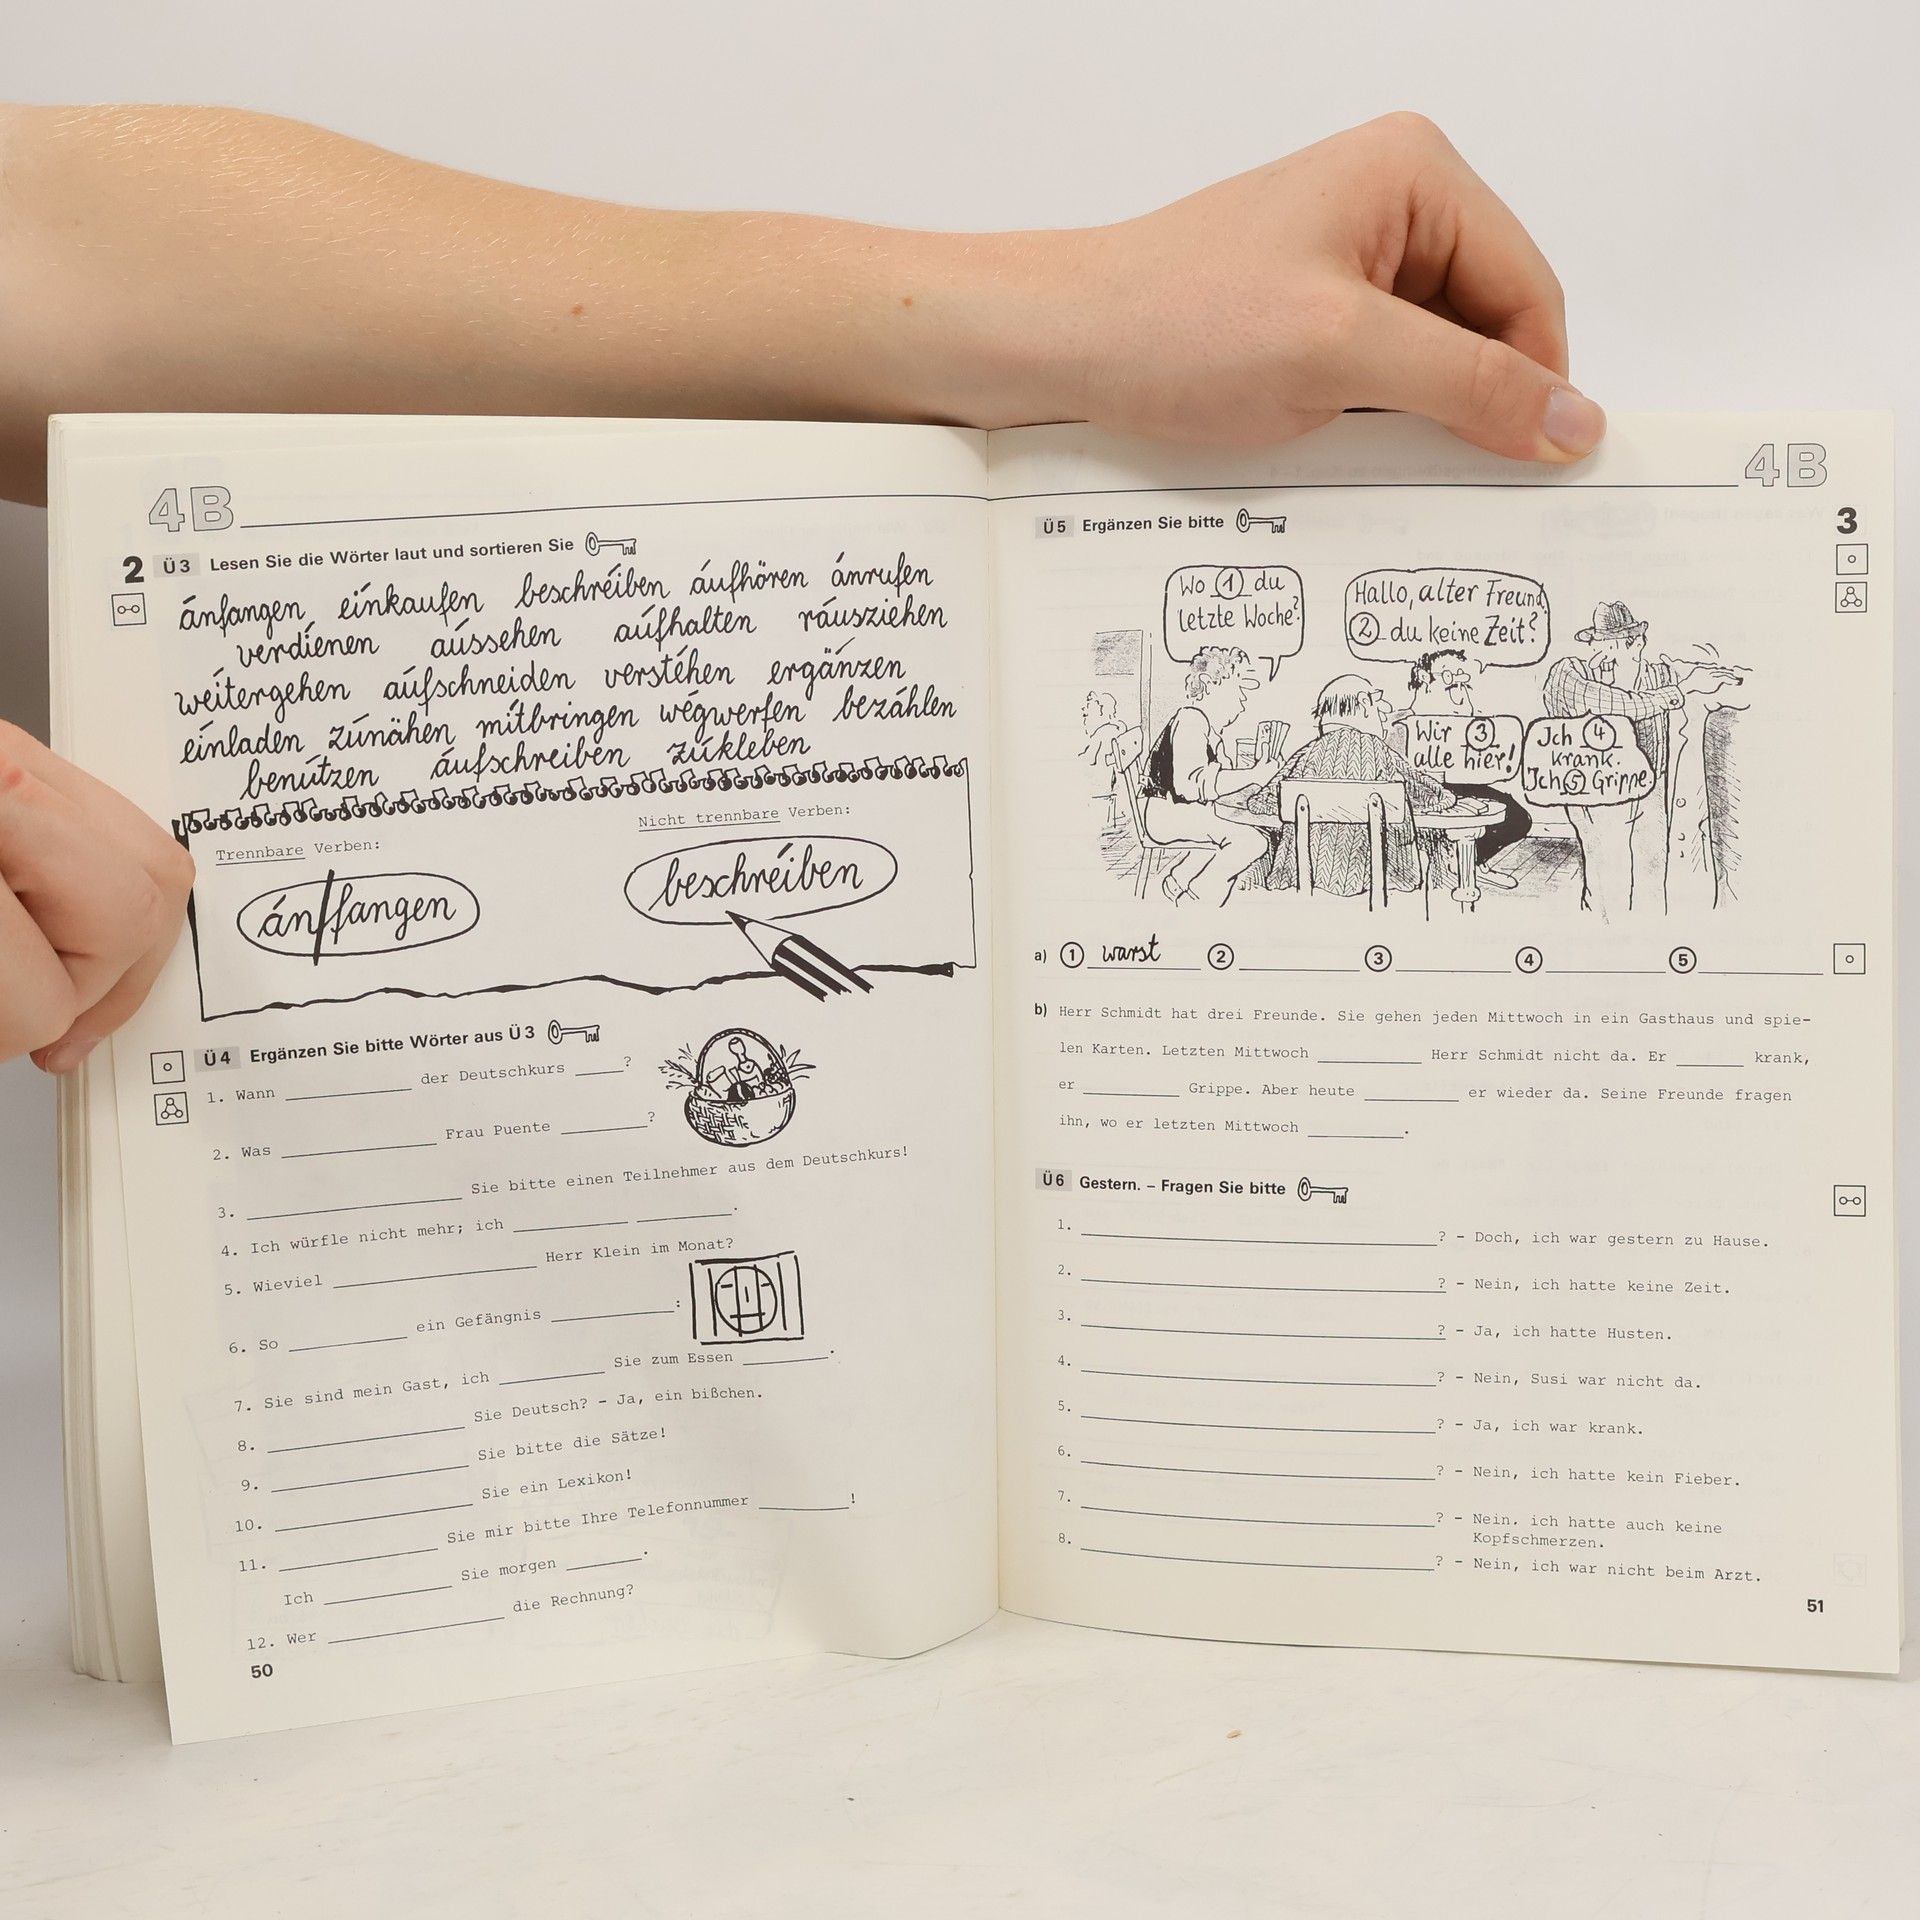 4B
2 Ü3 Lesen Sie die Wörter laut und sortieren Sie
ánfangen éinkaufen beschréiben áufhören ánrufen
verdíenen áussehen áufhalten ráusziehen
wéitergehen áufschneiden verstéhen ergä́nzen
éinladen zúnähen mítbringen wégwerfen bezáhlen
benútzen áufschreiben zúkleben
Trennbare Verben: Nicht trennbare Verben:
án/fangen beschréiben
Ü4 Ergänzen Sie bitte Wörter aus Ü3
1. Wann ________ der Deutschkurs ____?
2. Was ________ Frau Puente ____?
3. ________ Sie bitte einen Teilnehmer aus dem Deutschkurs!
4. Ich würfle nicht mehr; ich ________ ________.
5. Wieviel ________ Herr Klein im Monat?
6. So ________ ein Gefängnis ________:
7. Sie sind mein Gast, ich ________ Sie zum Essen ________.
8. ________ Sie Deutsch? – Ja, ein bißchen.
9. ________ Sie bitte die Sätze!
10. ________ Sie ein Lexikon!
11. ________ Sie mir bitte Ihre Telefonnummer ________!
Ich ________ Sie morgen ________.
12. Wer ________ die Rechnung?
50
4B
3
Ü5 Ergänzen Sie bitte
Wo ① du
letzte Woche?
Hallo, alter Freund,
② du keine Zeit?
Wir ③
alle hier!
Ich ④
krank.
Ich ⑤ Grippe.
a) ① warst ② ________ ③ ________ ④ ________ ⑤ ________
b) Herr Schmidt hat drei Freunde. Sie gehen jeden Mittwoch in ein Gasthaus und spie-
len Karten. Letzten Mittwoch ________ Herr Schmidt nicht da. Er ________ krank,
er ________ Grippe. Aber heute ________ er wieder da. Seine Freunde fragen
ihn, wo er letzten Mittwoch ________.
Ü6 Gestern. – Fragen Sie bitte
1. ________? – Doch, ich war gestern zu Hause.
2. ________? – Nein, ich hatte keine Zeit.
3. ________? – Ja, ich hatte Husten.
4. ________? – Nein, Susi war nicht da.
5. ________? – Ja, ich war krank.
6. ________? – Nein, ich hatte kein Fieber.
7. ________? – Nein. ich hatte auch keine
Kopfschmerzen.
8. ________? – Nein, ich war nicht beim Arzt.
51